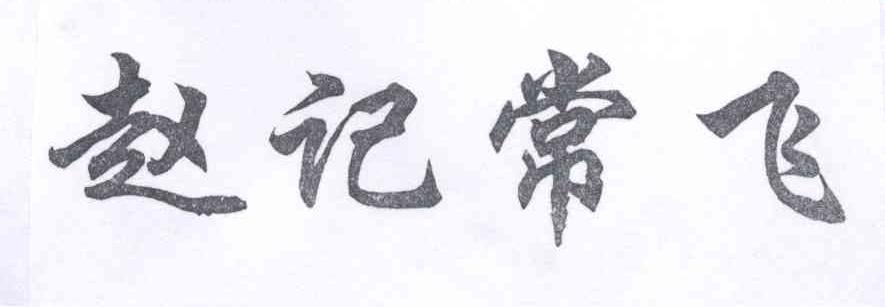 赵记常飞